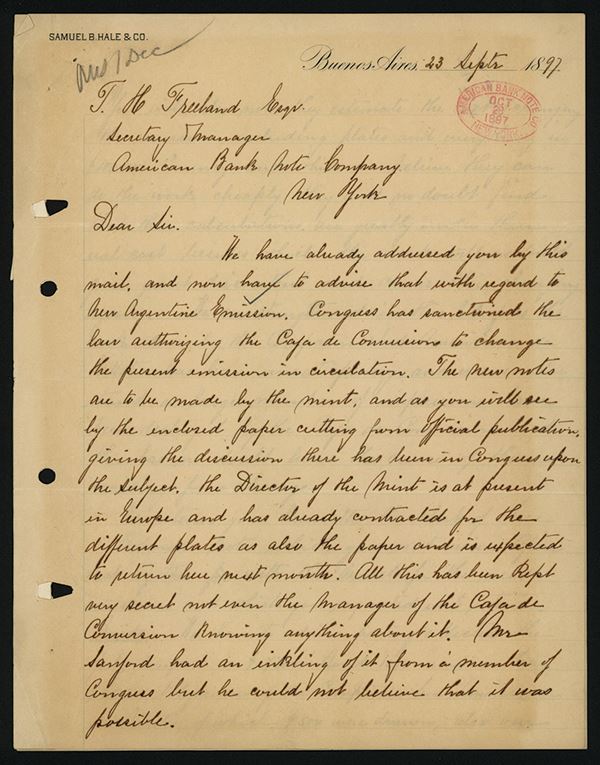 SAMUEL B. HALE & CO.
Buenos Aires, 23 Septr 1897
AMERICAN BANK NOTE CO.
OCT
1897
NEW YORK
T. H Freeland Esqr.
Secretary & Manager
American Bank Note Company
New York
Dear Sir.
We have already addressed you by this
mail, and now have to advise that with regard to
New Argentine Emission. Congress has sanctioned the
law authorizing the Caja de Conversion to change
the present emission in circulation. The new notes
are to be made by the mint, and as you will see
by the enclosed paper cutting from official publication,
giving the discussion there has been in Congress upon
the subject. The Director of the Mint is at present
in Europe and has already contracted for the
different plates as also the paper and is expected
to return here next month. All this has been kept
very secret not even the Manager of the Caja de
Conversion knowing anything about it. Mr
Sanford had an inkling of it from a member of
Congress but he could not believe that it was
possible.